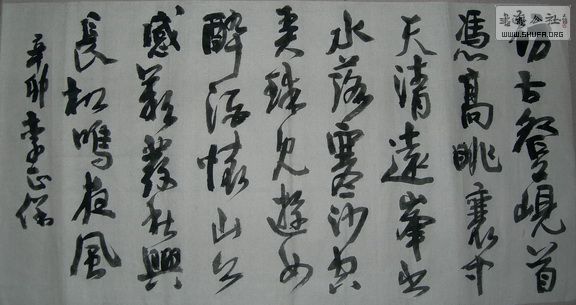 訪古登峴首
憑高眺襄中
天清遠峯出
水落寒沙空
弄珠見遊女
醉酒懷山公
感歎發秋興
長松鳴夜風
辛卯李正
公社
WWW.SHUFA.ORG